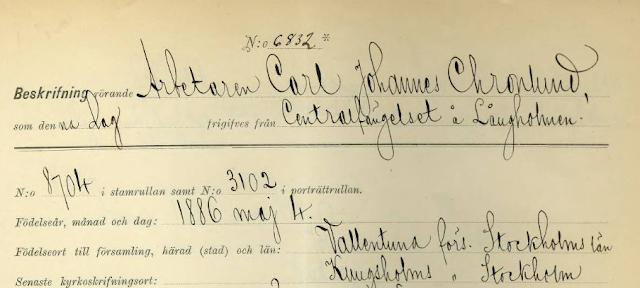 N:o 6832 *
Beskrifning rörande Arbetaren Carl Johannes Chroplund,
som den na dag frigifves från Centralfängelset å Långholmen.
N:o 8704 i stamrullan samt N:o 3102 i porträttrullan.
Födelseår, månad och dag: 1886 maj 4.
Födelseort till församling, härad (stad) och län: Vallentuna förs. Stockholms län
Senaste kyrkoskrifningsort: Kungsholms " Stockholm